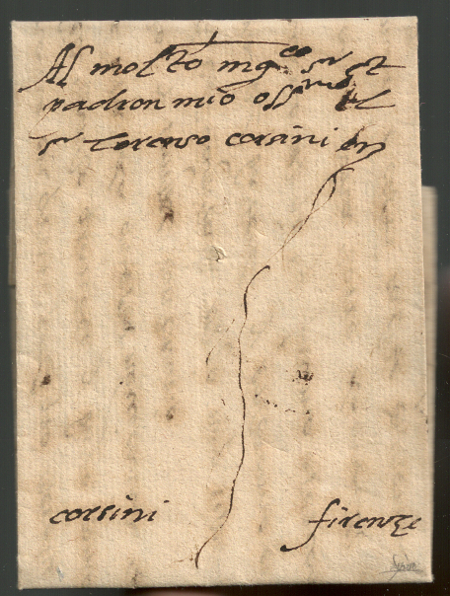 Al molto mg.co s.r et
padron mio oss.mo il
s.r lorenso corsini in
corsini
firenze